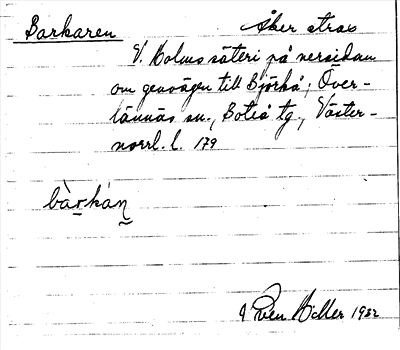 Barkaren Åker strax
V. Holms säteri på versidan
om genvägen till Björkå; Över-
lännäs sn., Boteå tg., Väster-
norrl. l. 179
bàrkán
Sven Möller 1932